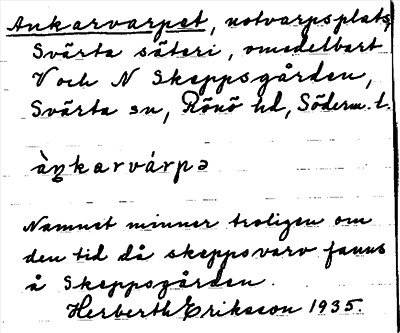 Ankarvarpet, notvarpsplats,
Svärta säteri, omedelbart
V och N Skeppsgården,
Svärta sn, Rönö hd, Söderm. l.
àŋkarvárpə
Namnet minner troligen om
den tid då skeppsvarv fanns
å Skeppsgården.
Herberth Eriksson 1935.